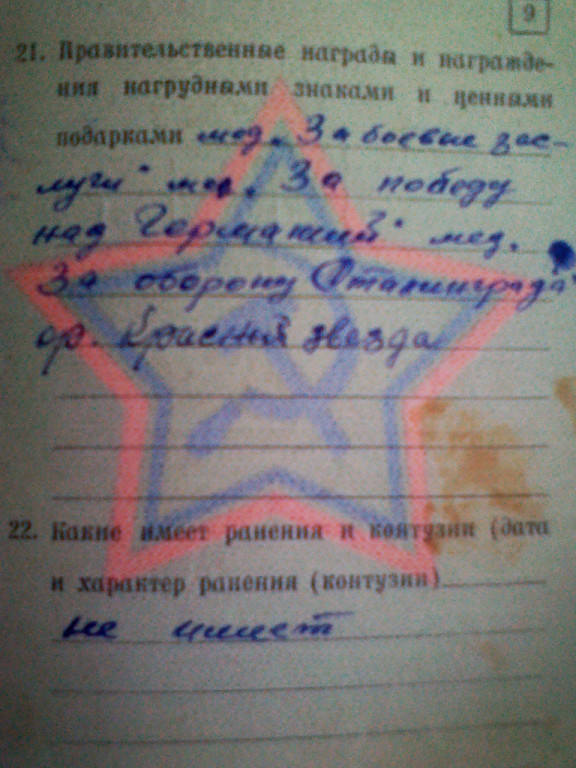 9
21. Правительственные награды и награжде-
ния нагрудными знаками и ценными
подарками мед. За боевые зас-
луги" мед. За победу
над Германией" мед.
За оборону Сталинграда"
ор. Красная звезда
22. Какие имеет ранения и контузии (дата
и характер ранения (контузии)
не имеет